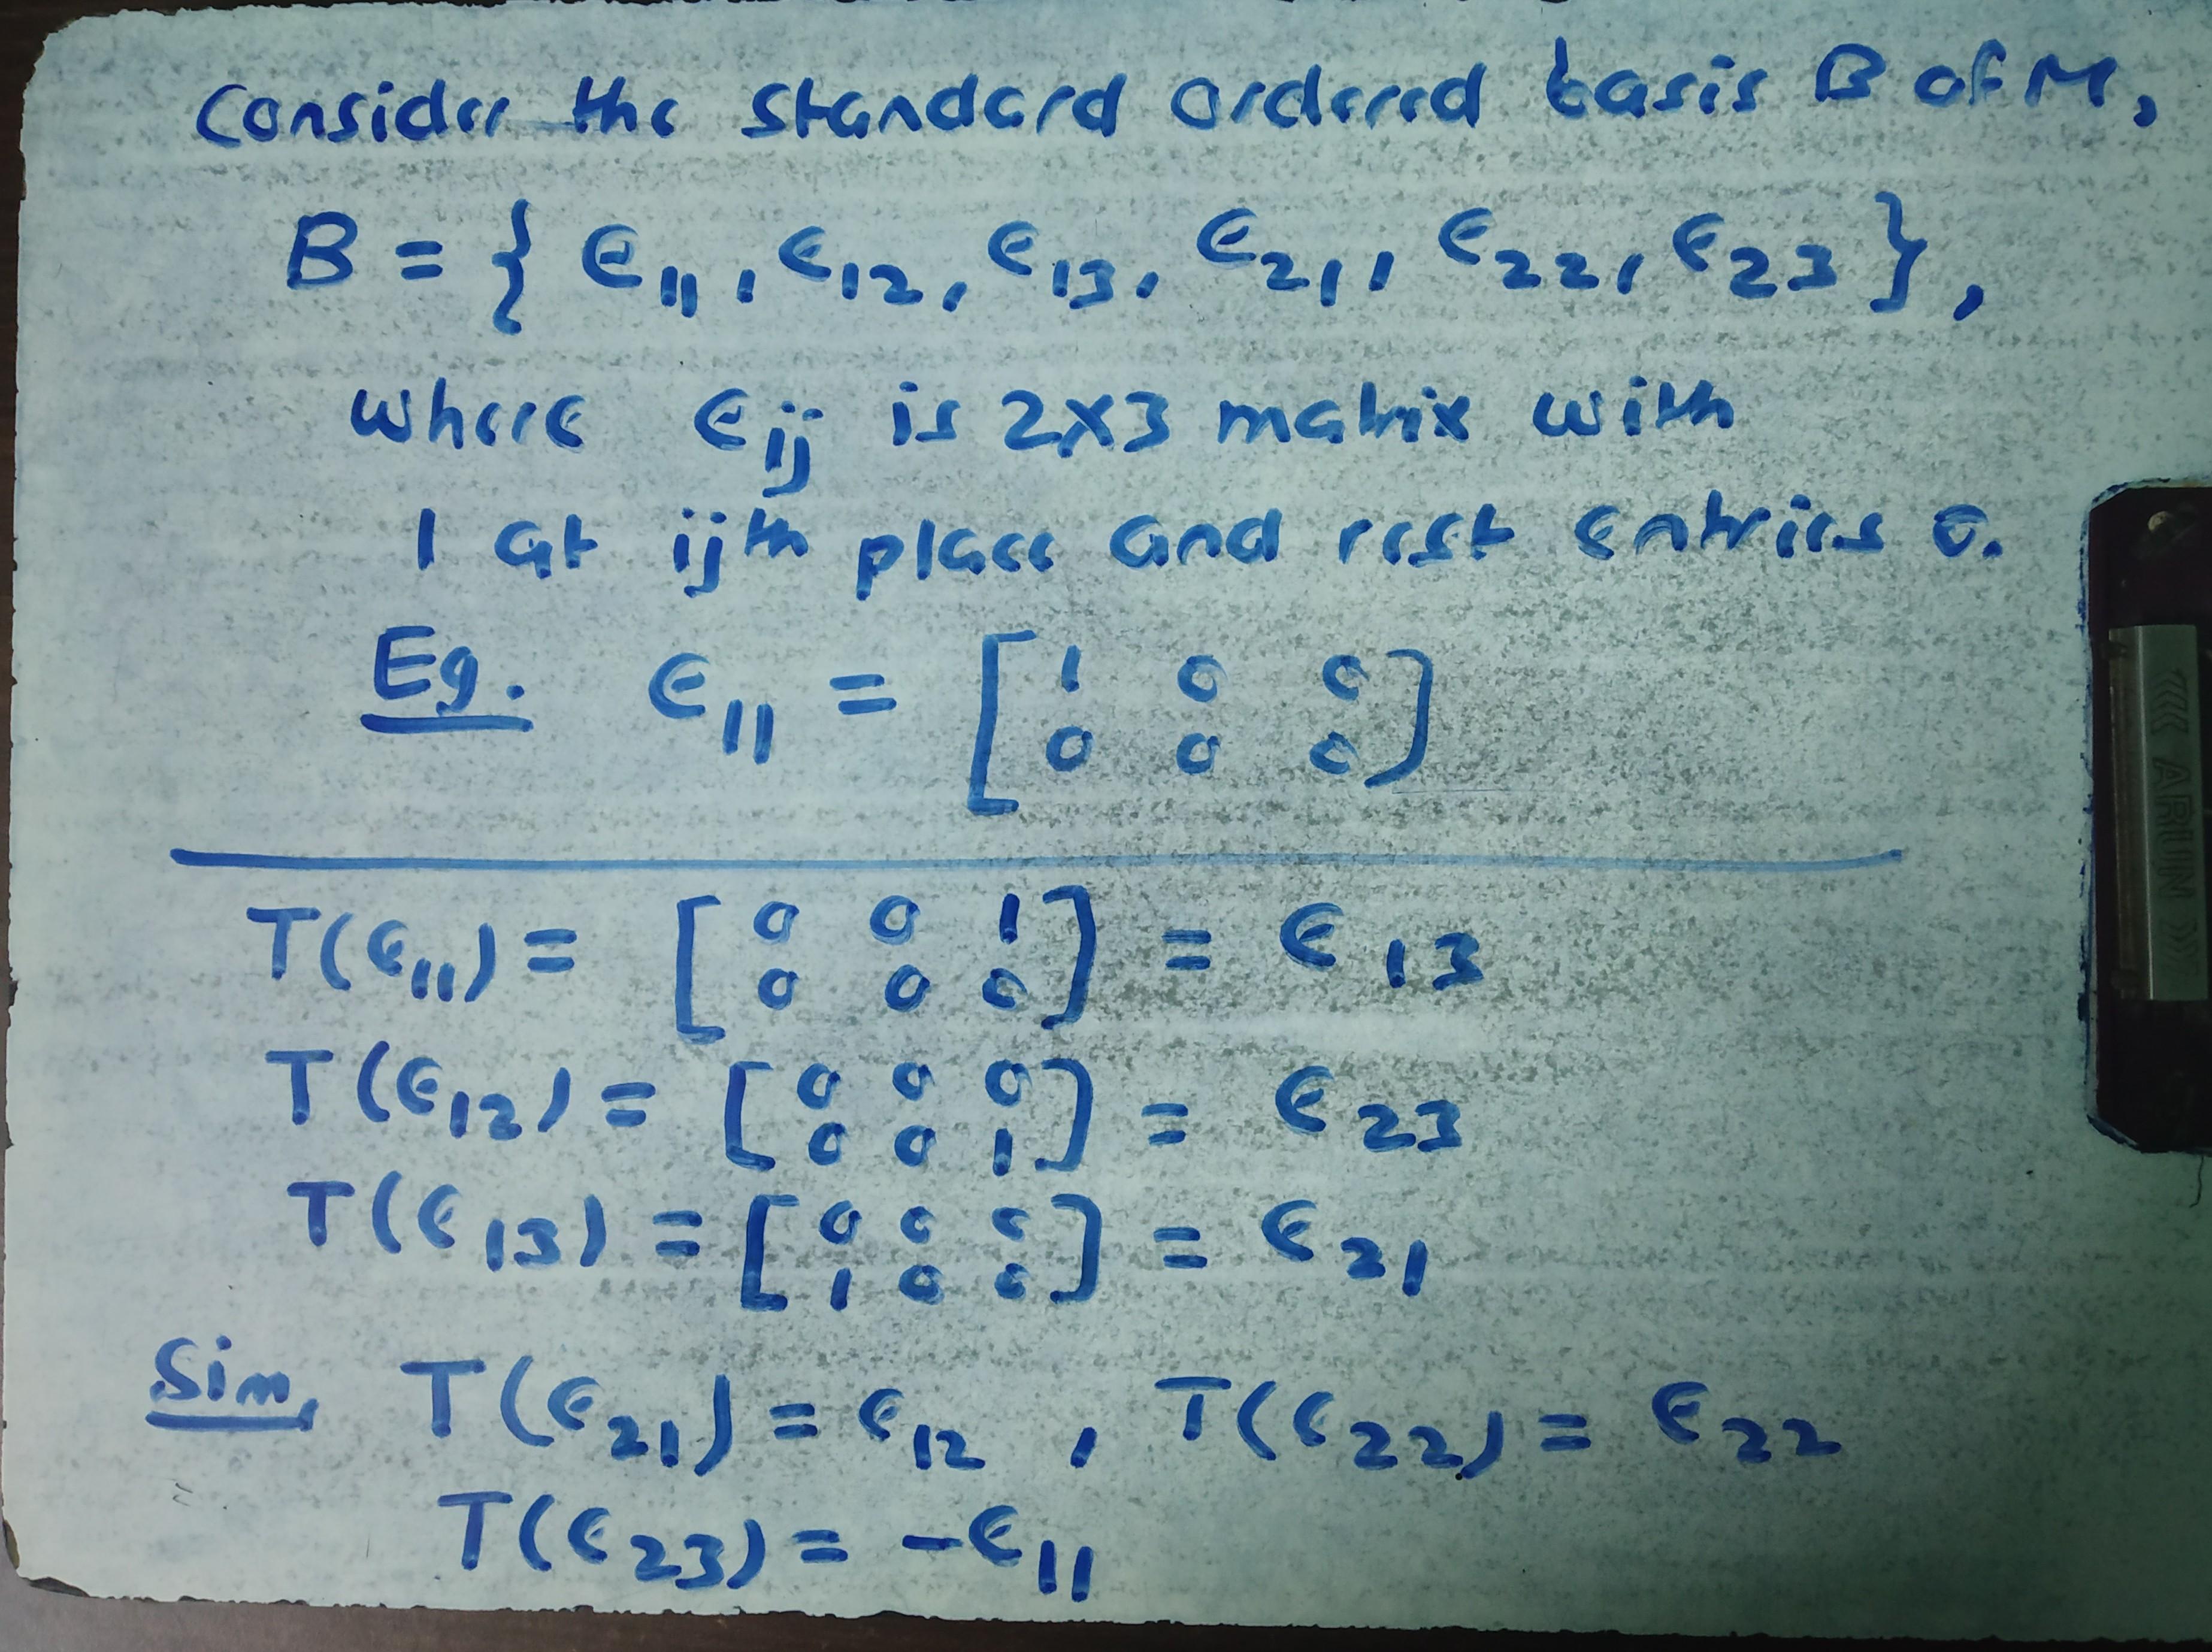 Consider the standard ordered basis B of M,
B = { ϵ11, ϵ12, ϵ13, ϵ21, ϵ22, ϵ23 },
where ϵij is 2x3 matrix with
1 at ijth place and rest entries 0.
Eg. ϵ11 = [ 1 0 0
0 0 0 ]
T(ϵ11) = [ 0 0 1
0 0 0 ] = ϵ13
T(ϵ12) = [ 0 0 0
0 0 1 ] = ϵ23
T(ϵ13) = [ 0 0 0
1 0 0 ] = ϵ21
Sim, T(ϵ21) = ϵ12 , T(ϵ22) = ϵ22
T(ϵ23) = -ϵ11
<<< ARUN >>>